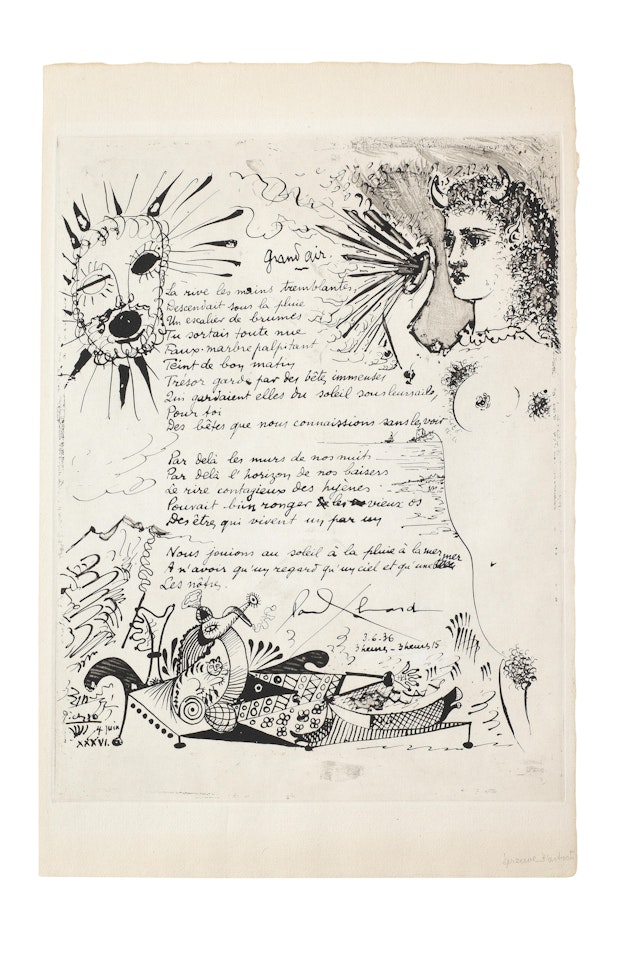 grand air.
La rive les mains tremblantes,
Descendait sous la pluie
Un escalier de brumes
Tu sortais toute nue
Faux marbre palpitant
Teint de bon matin
Trésor gardé par des bêtes immenses
Qui gardaient elles du soleil sous leurs ailes
Pour toi
Des bêtes que nous connaissions sans les voir
Par delà les murs de nos nuits
Par delà l'horizon de nos baisers
Le rire contagieux des hyènes
Pouvait bien ronger les vieux os
Des êtres qui vivent un par un
Nous jouions au soleil à la pluie à la mer
A n'avoir qu'un regard qu'un ciel et qu'une mer
Les nôtres.
Paul Eluard
3.6.36
3 heures - 3 heures 15
Picasso
4 juin
XXXVI.
épreuve d'artiste